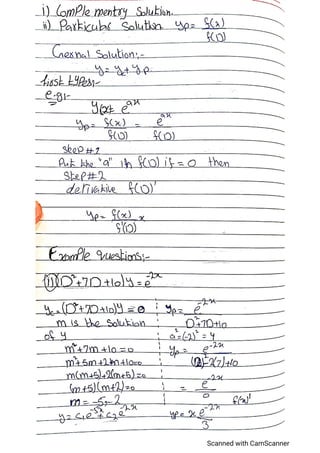 i) ComPle mentry Solution.
ii) Particular Solution yp = f(x)/f(D)
General Solution:-
y = yc + yp
first types:-
e.g:-
y(x) e^ax
yp = f(x)/f(D) = e^ax/f(D)
Step #1
Put the "a" in f(D) if = 0 then
Step #2
derivative f(D)'
yp = f(x)/f'(D) x
Example questions:-
(i) (D²+7D+10)y = e^-2x
yc = (D²+7D+10)y = 0
m is the Solution
of y
m²+7m+10=0
m²+5m+2m+10=0
m(m+5)+2(m+5)=0
(m+5)(m+2)=0
m = -5, -2
y = c₁e^-5x + c₂e^-2x
yp = e^-2x/D²+7D+10
a² = (-2)² = 4
yp = e^-2x/(2)²-2(7)+10
= e^-2x/0 f(x)'
yp = x e^-2x/3
Scanned with CamScanner